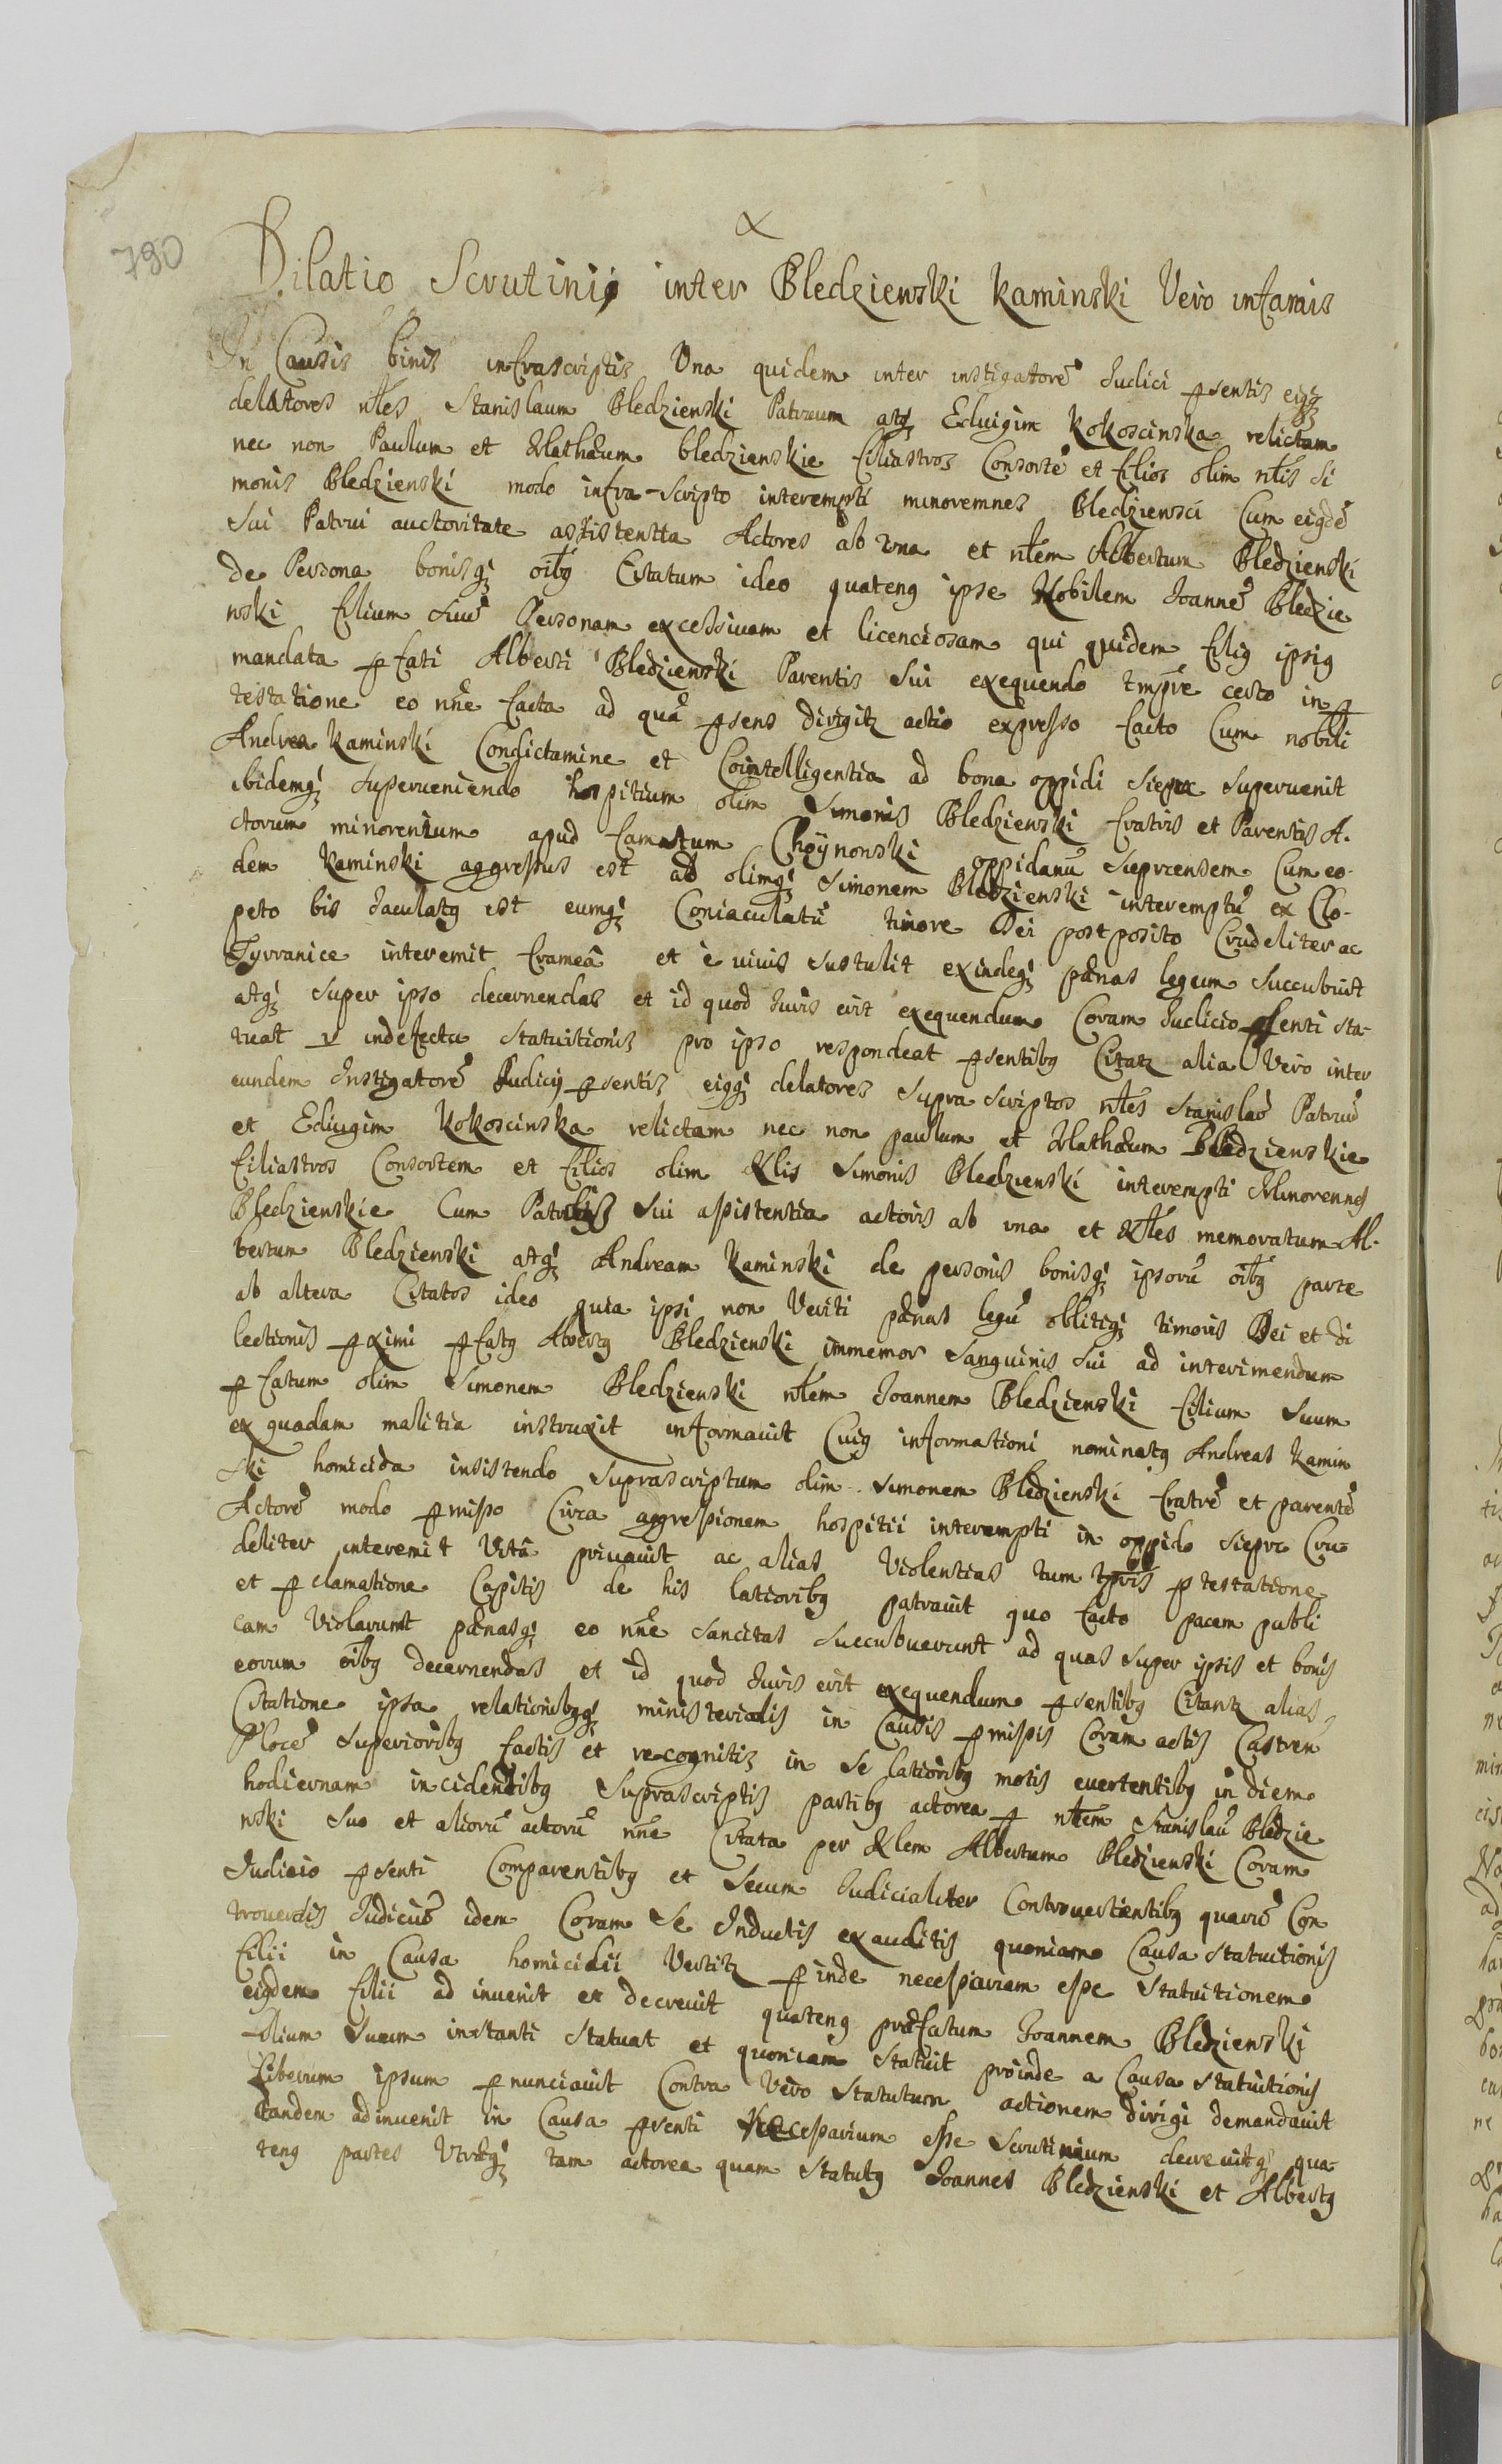 780
Dilatio Scrutinij inter Bledzienski Kaminski Vero infamis
In Causis binis infrascriptis Una quidem inter instigatorē Judici p̄sentis eigq́
delatores nłes Stanislaum Bledzienski Patruum atq́ Eduigim Kokoscinska relictam
nec non Paulum et Mathæum bledzienskie filiastros Consortē et filios olim nłis Si
monis Bledzienski modo infra-scripto interempti minorennes Bledziensci Cum eigdē
Sui Patrui auctoritate assistentia Actores ab una et nłem Albertum Bledzienski
de Persona bonisq́ oībg Citatum ideo quateng ipse Nobilem Joannē Bledzie
nski filium suū Personam excessivam et licenciosam qui quidem filig ipsig
mandata p̄fati Alberti Bledzienski Parentis Sui exequendo tmp̄re certo in p̄
testatione eo nn̄e facta ad quā p̄sens dirigitz actio expresso facto Cum nobili
Andrea Kaminski Condictamine et Cointelligentia ad bona oppidi Sieprc supervenit
ibidemq́ superveniendo hospitium olim Simonis Bledzienski fratris et Parentis A.
ctorum minorenium apud famatum Choÿnonski oppidanū Sieprcensem Cum eo-
dem Kaminski aggressus est ad olimq́ Simonem Bledzienski interemptū ex Clo-
peto bis Jaculatg est eumq́ Coniaculatū timore Dei postposito Crudeliter ac
Tyrranice interemit frameâ et è vivis sustulit exindeq́ pænas legum succubuit
atq́ super ipso decernendas et id quod Juris erit exequendum Coram Judicio p̄senti sta-
tuat v indefectu statuitionis pro ipso respondeat p̄sentibg Citatz alia Vero inter
eundem Instigatorē Judicij p̄sentis eigq́ delatores supra scriptos nłes Stanislaū Patruū
et Eduigim Kokoscinska relictam nec non paulum et Mathæum Bledzienskie
filiastros Consortem et filios olim Nlis Simonis Bledzienski interempti Minorennes
Bledzienskie Cum Patrui sui assistentia actoris ab una et Nłes memoratum Al-
bertum Bledzienski atq́ Andream Kaminski de personis bonisq́ ipsorū oībg parte
ab altera Citatos ideo quia ipsi non Veriti pænas legū oblitiq́ timoris Dei et di
lectionis p̄ximi p̄fatg Albertg Bledzienski immemor sanguinis sui ad interimendum
p̄fatum olim Simonem Bledzienski nłem Joannem Bledzienski filium suum
ex quadam malitia instruxit informavit Cuig informationi nominatg Andreas Kamin
ski homicida insistendo suprascriptum olim Simonem Bledzienski fratrē et parentē
Actorē modo p̄misso Circa aggressionem hospitii interempti in oppido Sieprc Cru
deliter interemit Vitâ privavit ac alias Violentias tum tp̄ris p̄testatione
et p̄clamatione Capitis de his latioribg patravit quo facto pacem publi
cam Violarunt pænasq́ eo nn̄e sancitas succubuerunt ad quas super ipsis et bonis
eorum oībg decernendas et id quod Juris erit exequendum p̄sentibg Citantz alias
Citatione ipsa relationibgq́ ministerialis in Causis p̄missis Coram actis Castren
Plocē superioribg factis et recognitis in se latioribg motis evertentibg in diem
hodiernam incidentibg suprascriptis partibg actorea p̄ nłem Stanislaū Bledzie
nski suo et aliorū actorū nn̄e Citata per Nlem Albertum Bledzienski Coram
Judicio p̄senti Comparentibg et secum Judicialiter Controvertentibg quarū Con
troversis Judiciū idem Coram se Inductis exauditis quoniam Causa statuitionis
filii in Causa homicidii Vertitz p̄inde necessariam esse statuitionem
eigdem filii ad invenit et decrevit quateng præfatum Joannem Bledzienski
filium suum instanti statuat et quoniam statuit proinde a Causa statuitionis
liberum ipsum p̄nunciavit Contra Vero statutum actionem dirigi demandavit
tandem adinvenit in Causa p̄senti Necessarium esse scrutinium decrevitq́ qua-
teng partes Utræq́ tam actorea quam statutg Joannes Bledzienski et Albertg